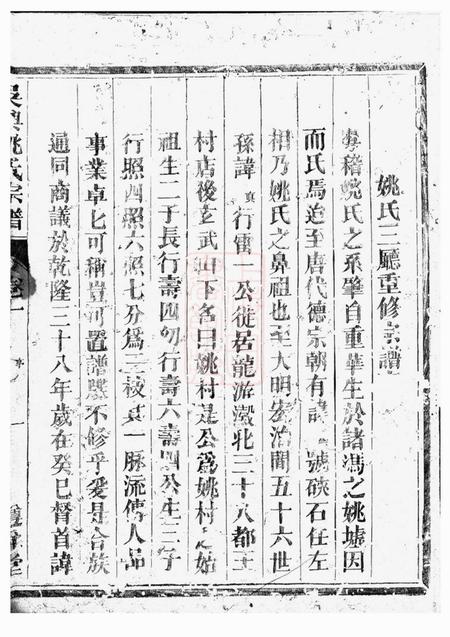 姚氏三廳重修宗譜
嘗稽姚氏之系肇自重華生於諸馮之姚墟因
而氏焉迨至唐代德宗朝有諱 號硤石任左
相乃姚氏之鼻祖也至大明宏治間五十六世
孫諱真行富一公徙居龍游瀫北三十八都王
村店後玄武山下名曰姚村是公為姚村之始
祖生二子長行壽四幼行壽六壽四公生三子
行照四照六照七分為三枝真一脉流傳人品
事業卓匕可稱豈可置譜墜不修乎爰是合族
通同商議於乾隆三十八年歲在癸巳督首諱
吳興姚氏宗譜
卷一